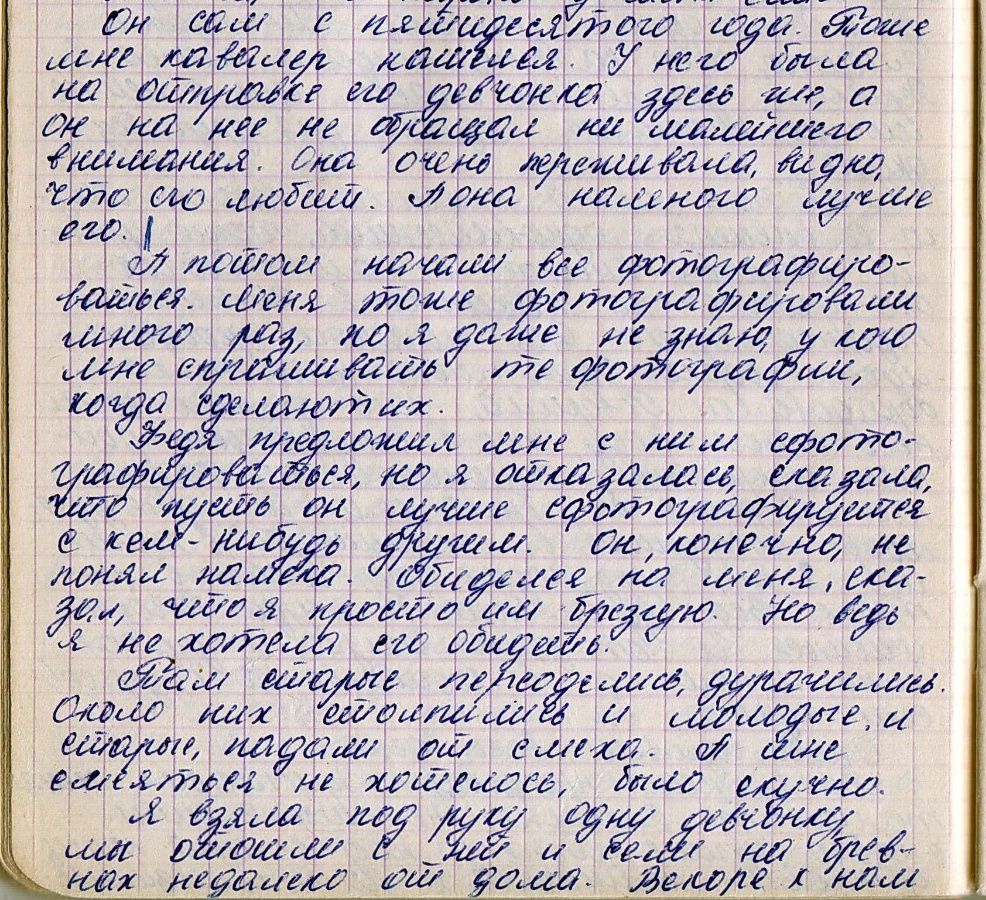 Он сам с пятидесятого года. Тоже
мне кавалер нашелся. У него была
на отправке его девчонка здесь же, а
он на нее не обращал ни малейшего
внимания. Она очень переживала, видно,
что его любит. А она намного лучше
его.
А потом начали все фотографиро-
ваться. Меня тоже фотографировали
много раз, но я даже не знаю, у кого
мне спрашивать те фотографии,
когда сделают их.
Федя предложил мне с ним сфото-
графироваться, но я отказалась, сказала,
что пусть он лучше сфотографируется
с кем-нибудь другим. Он, конечно, не
понял намека. Обиделся на меня, ска-
зал, что я просто им брезгую. Но ведь
я не хотела его обидеть.
Там старые переоделись, дурачились.
Около них столпились и молодые, и
старые, падали от смеха. А мне
смеяться не хотелось, было скучно.
Я взяла под руку одну девчонку,
мы отошли с ней и сели на брев-
нах недалеко от дома. Вскоре к нам